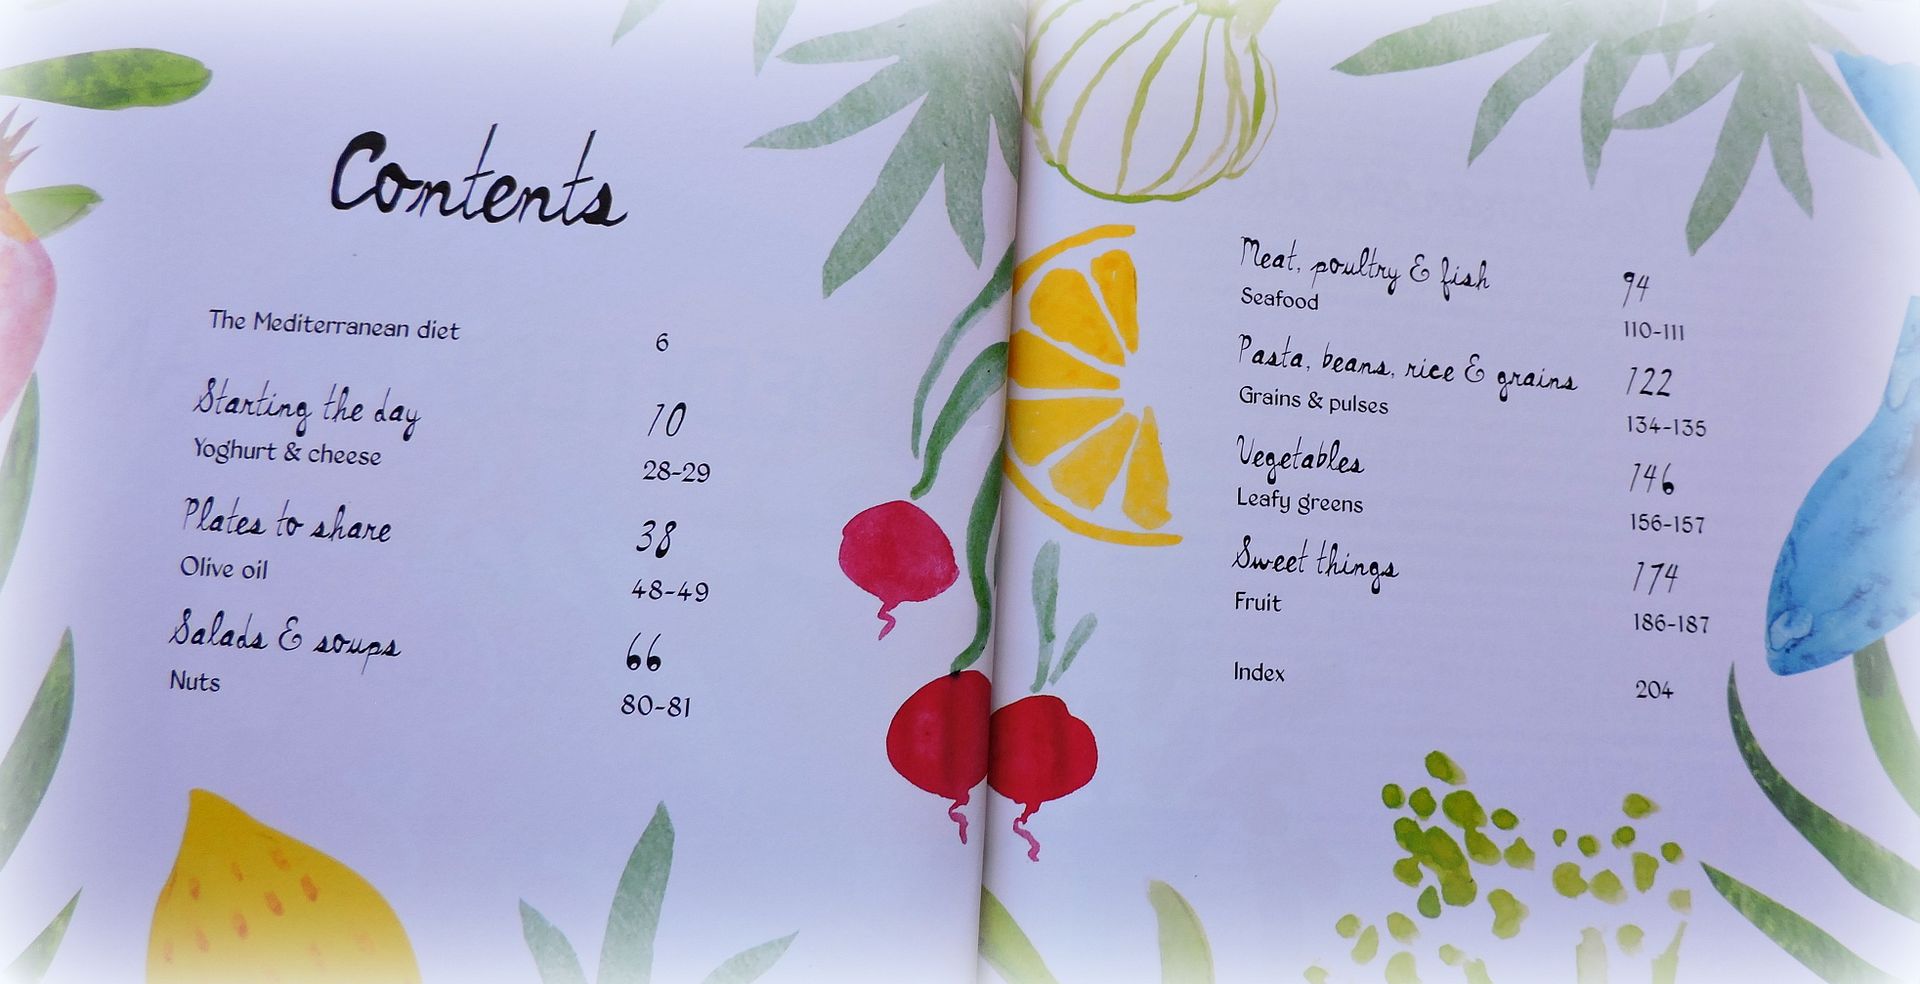 Contents
The Mediterranean diet 6
Starting the day 10
Yoghurt & cheese 28-29
Plates to share 38
Olive oil 48-49
Salads & soups 66
Nuts 80-81
Meat, poultry & fish 94
Seafood 110-111
Pasta, beans, rice & grains 122
Grains & pulses 134-135
Vegetables 146
Leafy greens 156-157
Sweet things 174
Fruit 186-187
Index 204